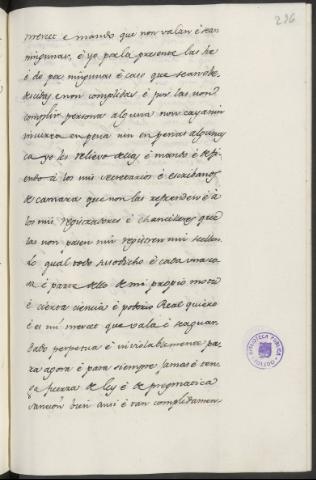 236
merced e mando que non valan é sean
ningunas, é yo por la presente las he
é do por ningunas é caso que sean obe-
descidas, e non complidas é por las non
complir persona alguna non caya nin
incurra en pena nin en penas algunas
ca yo les relievo dellas é mando é defi-
endo á los mis secretarios é escribanos
de camara que non las refrenden é á
los mis registradores é chancilleres que
las non pasen nin registren nin sellen.
lo qual todo susodicho é cada una co-
sa é parte dello de mi propio motu
é cierta ciencia é poderio Real quiero
é es mi merced que vala é sea guar-
dado perpetua é inviolablemente pa-
ra agora é para siempre jamas é ten-
ga fuerza de ley é de pregmatica
sancion bien ansi é tan complidamen-
BIBLIOTECA PUBLICA
TOLEDO